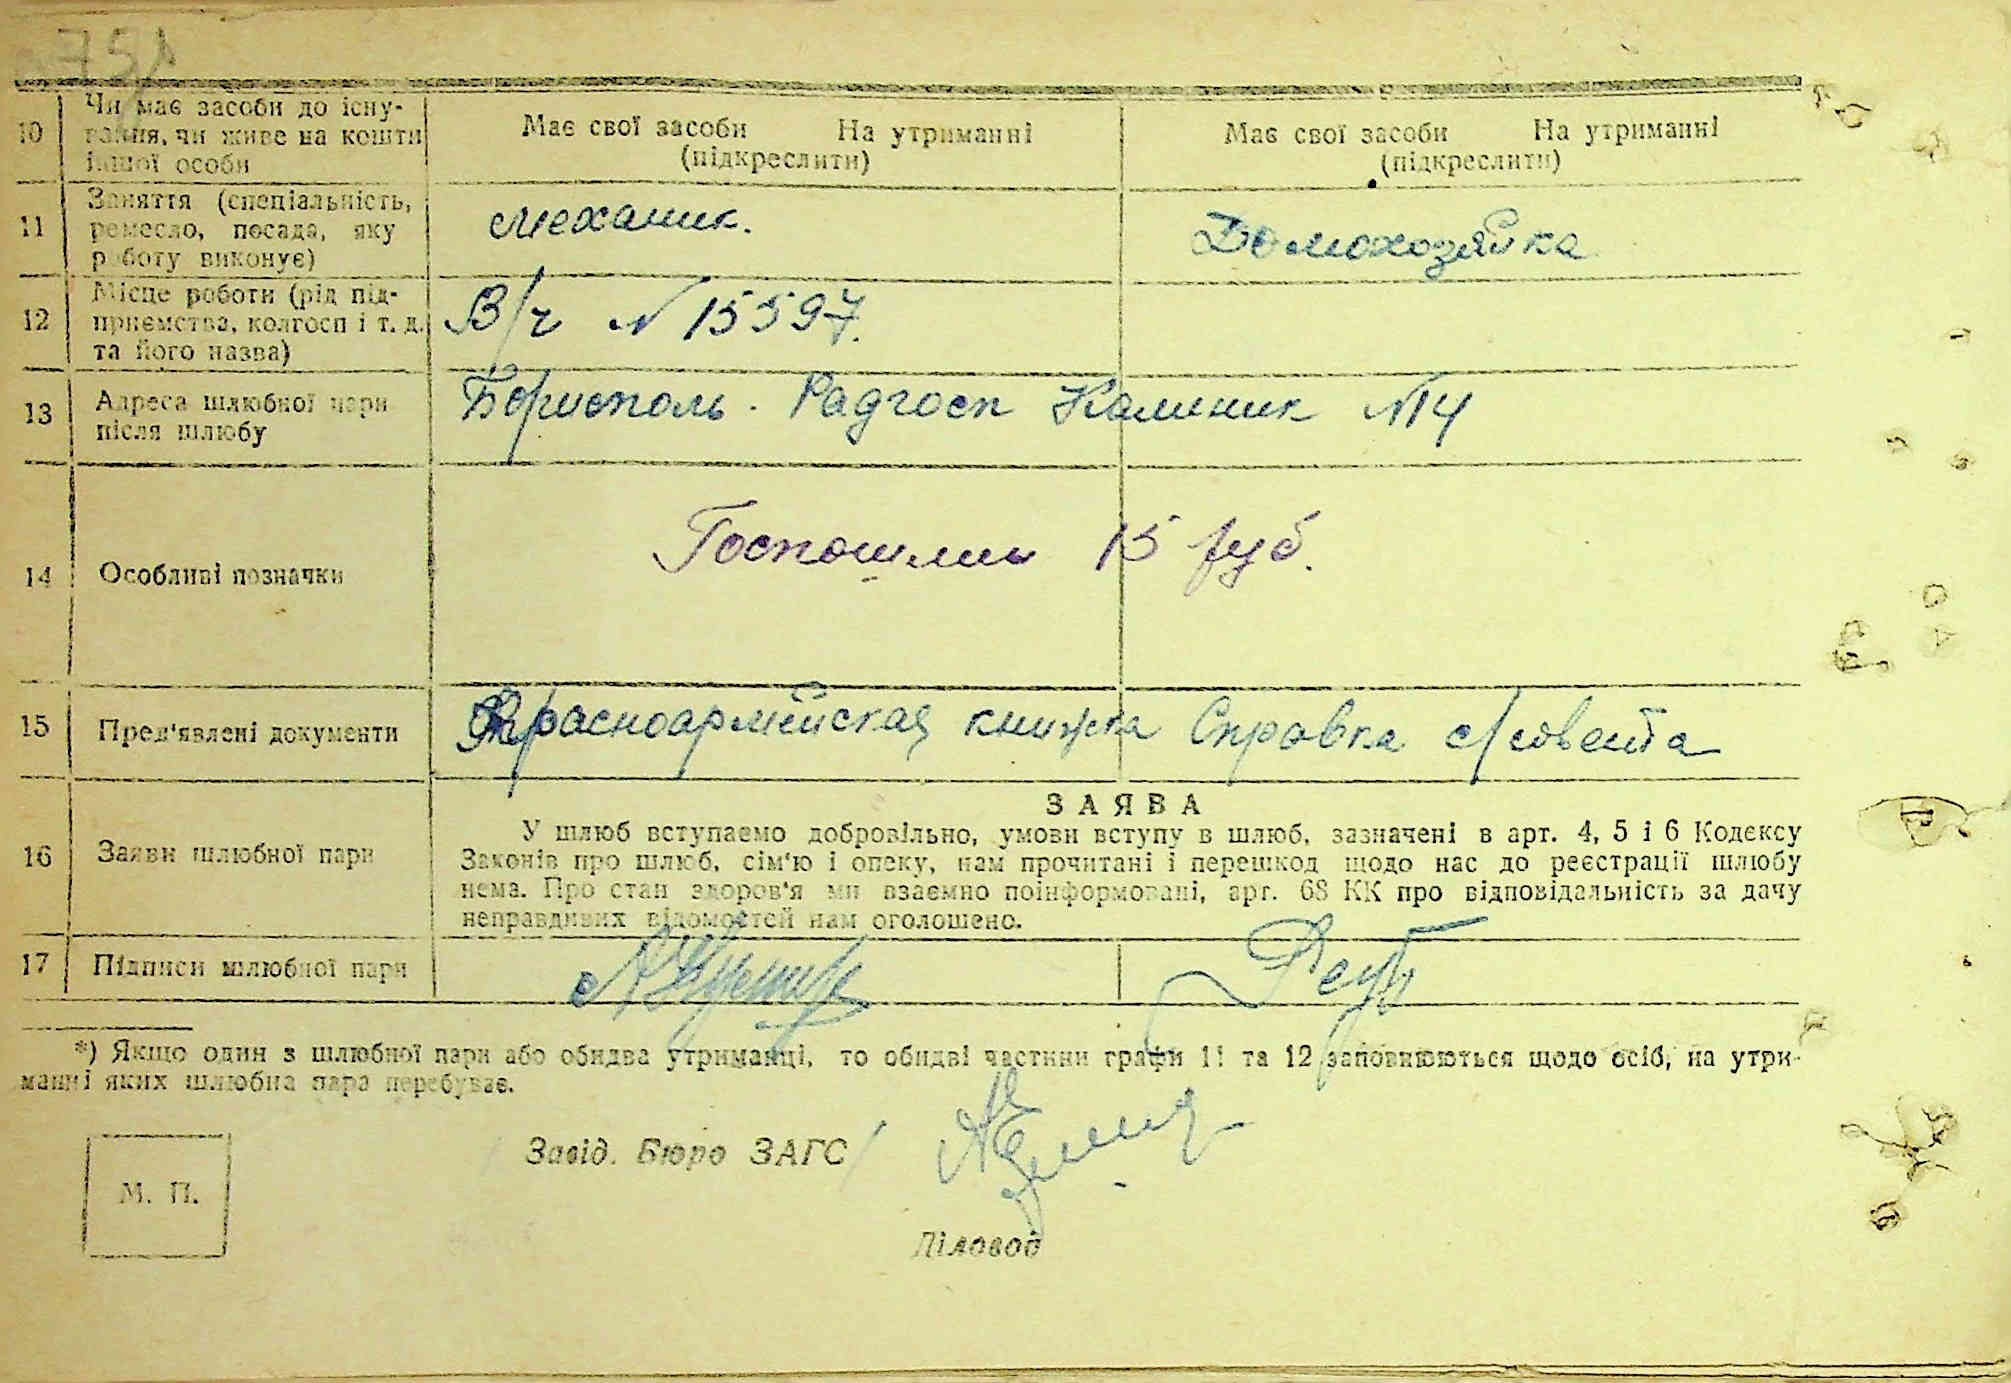 751
10 Чи має засоби до існу-
вання, чи живе на кошти
іншої особи
Має свої засоби На утриманні
(підкреслити)
Має свої засоби На утриманні
(підкреслити)
11 Заняття (спеціальність,
ремесло, посада, яку
роботу виконує)
Механик.
Домохозяйка
12 Місце роботи (рід під-
приємства, колгосп і т. д.
та його назва)
В/ч № 15597.
13 Адреса шлюбної пари
після шлюбу
Борисполь. Радгосп Калиник №14
14 Особливі позначки
Госпошлины 15 руб.
15 Пред'явлені документи
Красноармейская книжка
Справка с/совета
16 Заяви шлюбної пари
ЗАЯВА
У шлюб вступаємо добровільно, умови вступу в шлюб, зазначені в арт. 4, 5 і 6 Кодексу
Законів про шлюб, сім'ю і опеку, нам прочитані і перешкод щодо нас до реєстрації шлюбу
нема. Про стан здоров'я ми взаємно поінформовані, арт. 68 КК про відповідальність за дачу
неправдивих відомостей нам оголошено.
17 Підписи шлюбної пари
*) Якщо один з шлюбної пари або обидва утриманці, то обидві частини графи 11 та 12 заповнюються щодо осіб, на утри-
манні яких шлюбна пара перебуває.
Завід. Бюро ЗАГС
М. П.
Діловод